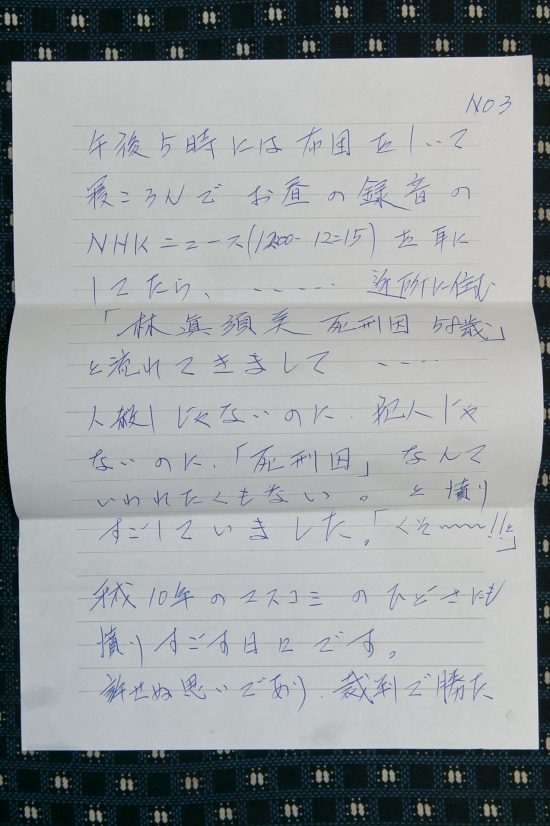 NO3
午後5時には布団をしいて
寝ころんで お昼の録音の
NHKニュース(1200-12=15)を耳に
してたら、‥‥‥ 近所に住む
「林 眞須美 死刑囚 58歳」
と流れてきまして ‥‥
人殺しじゃないのに、犯人じゃ
ないのに、「死刑囚」なんて
いわれたくもない。と憤り
すごしていました。「くそ〜〜〜!!と」
平成10年のマスコミのひどさにも
憤りすごす日々です。
許せぬ思いであり、裁判で勝た